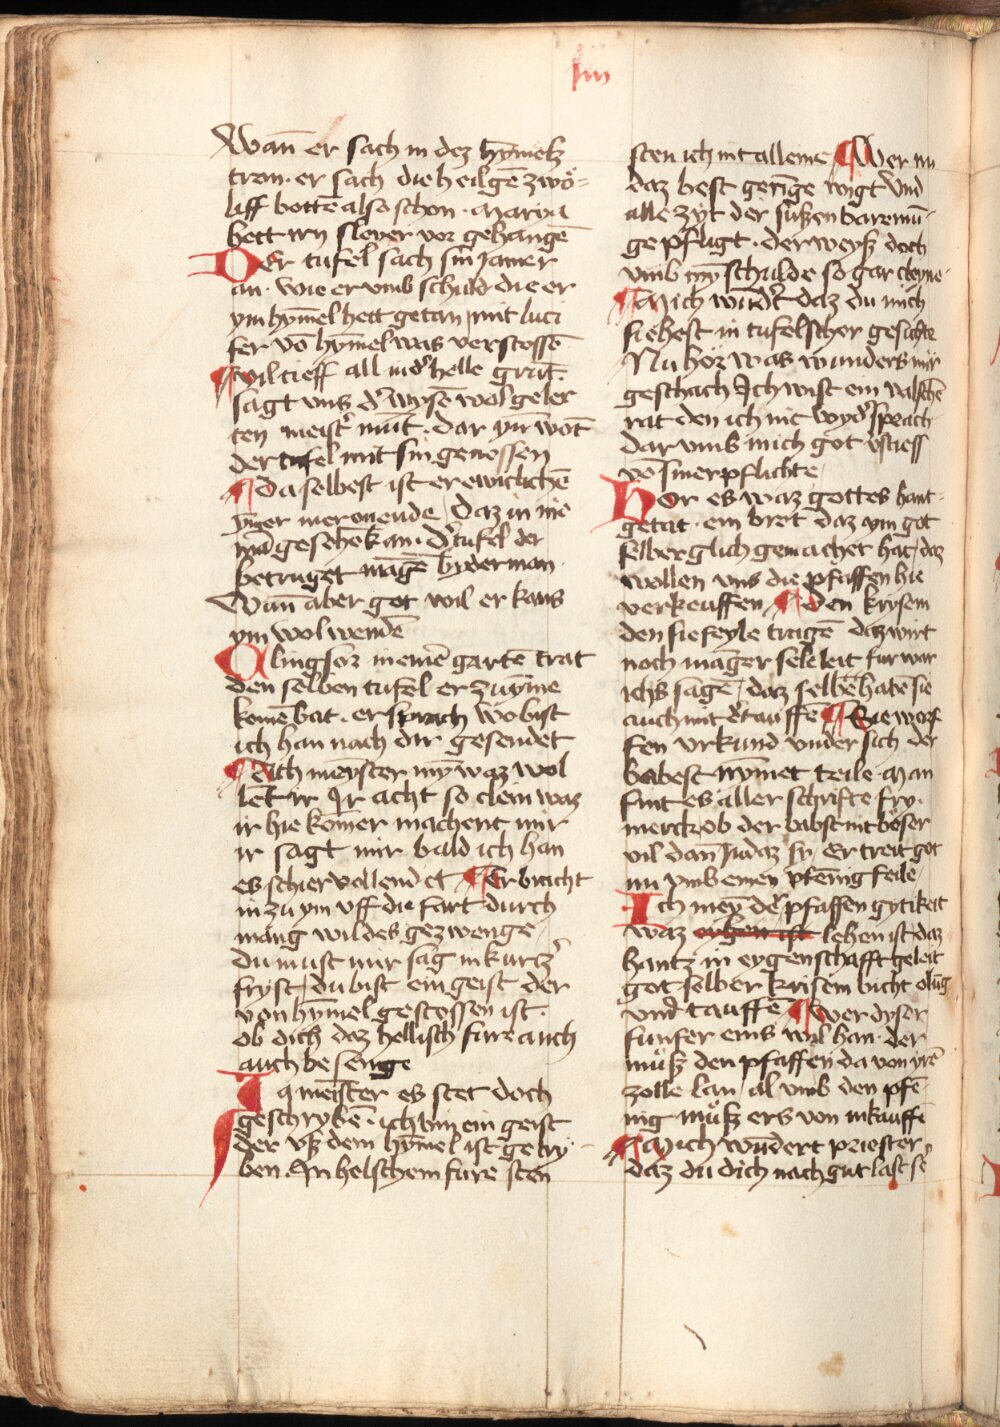 Wan̄ er sach in dez hȳmelz
tron · er sach die heilgē zwö=
liff bottē also schon · maria
hett irn sleyer vor gehangē
Der tufel sach sin Jamer
an · wie er vmb schuld die er
ym hȳmel hett getan mit luci
fer vō hȳmel was verstossē
vil tieff all in d' helle grūt ·
sagt vns d' wysē wol geler
ten meist' mūt · dar yn̄ wōt
der tufel mit sin genossen
Da selbest ist er ewiclichē
ymer mer on ende / Daz in nie
mā gesehen kan · d' tufel der
betruget māgē byderman ·
Wan̄ aber got wil er kans
ym wol wendē
Clingsor in einē gartē trat
den selben tufel er zu ȳme
komē bat · er sprach wo bist
ich han nach dir gesendet
Ach meyster mȳ waz wol
let ir Ir acht so clein waz
ir hie komer machent mir
ir sagt mir bald ich han
es schier vollendet Er bracht
in zu ym vff die fart durch
māng wildes gezwenge /
du must mir sag in kurtz'
fryst / du bist ein geist der
von hȳmel gestossen ist ·
ob dich daz hellisch fure auch
auch besenge
Ja meister es stet doch
geschrybē · ich bin ein geist
der vß dem hȳmel ist getry
ben · In helschem fure sten
sten ich nit alleine Wer nu
daz best geringe wigt vnd
alle zyt der sußen baremū
ge pfligt · der weyß doch
vmb mȳ schulde so gar cleyne ·
Mich wūd't daz du mich
siehest in tufelscher gesichte
Nu hör was wunders mir
geschach Ich wist ein valschē
rat den ich nie wyd' sprach
dar vmb mich got v'stiess
vō siner pflichte /
Hor es waz gottes hant=
getat · ein bret daz ym got
selber glich gemachet hat / daz
wollen vns die pfaffen hie
verkeuffen Den krysem
den sie feyle tragē daz wirt
noch māger sele leit fur war
ichs sagē / daz selbē habē sie
auch mit d' tauffē Sie worf
fen vrkund vnder sich der
babest nȳmet teile · man
fint es aller schrifte fry ·
merck ob der babst nit böser
vil dan̄ Judaz sy / Er treit got
nu vmb einen pfēnig feile
Ich mey de' pfaffen gytikeit
waz eygen ist lehen ist daz
hantz in eygenschafft geleit
got selber krisem bicht olūg
vnd tauffē Wer dyser
funfer eins wil han · der
muß den pfaffen da von yrē
zolle lan / al vmb den pfē
nig muß ers von in kauffē
Mich wūdert priester
daz du dich nach gut last sē